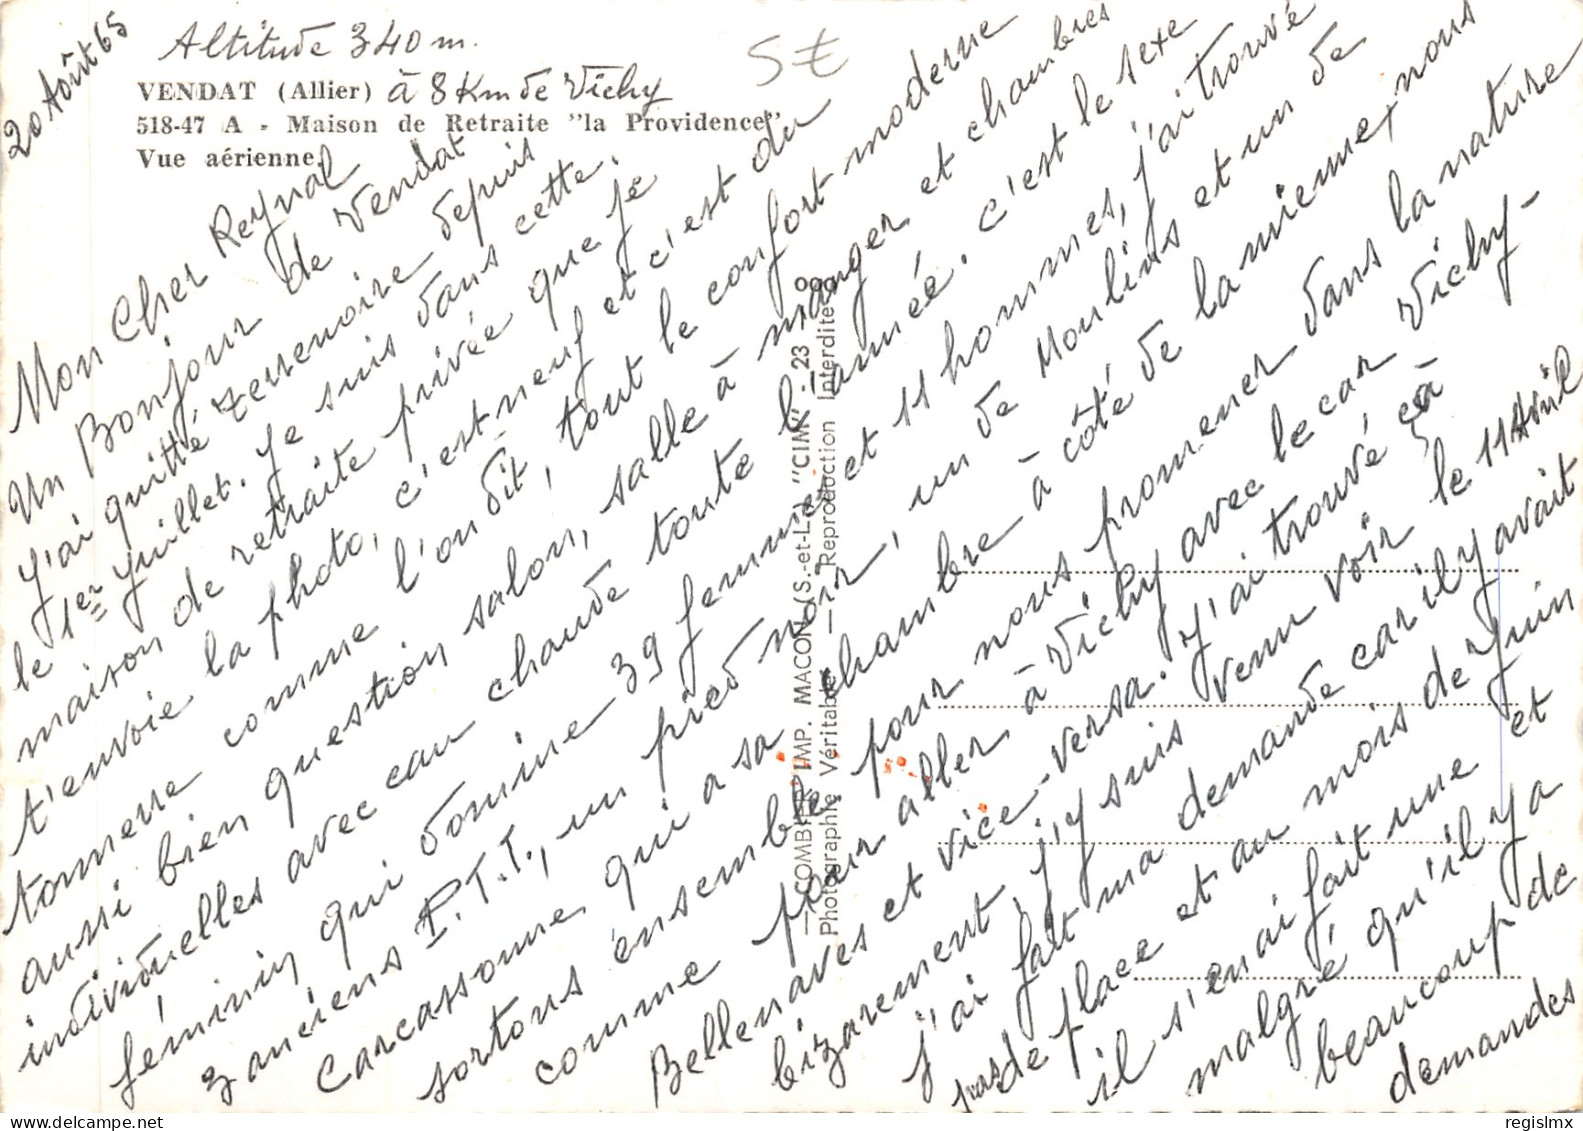 20 Août 65
Altitude 340 m.
5€
VENDAT (Allier) à 8 Km de Vichy
518-47 A - Maison de Retraite "la Providence"
Vue aérienne.
Mon Cher Reynal
Un Bonjour de Vendat
J'ai quitté Terrenoire depuis
le 1er Juillet. Je suis dans cette
maison de retraite privée que je
t'envoie la photo, c'est neuf et c'est du
tonnerre comme l'on dit, tout le confort moderne
aussi bien question salon, salle à manger et chambres
individuelles avec eau chaude toute l'année. c'est le sexe
féminin qui domine 39 femmes et 11 hommes, j'ai trouvé
3 anciens P.T.T., un pied noir, un de Moulins et un de
Carcassonne qui a sa chambre à côté de la mienne, nous
sortons ensemble pour nous promener dans la nature
comme pour aller à Vichy avec le car Vichy-
Bellenaves et vice-versa. J'ai trouvé çà
bizarement, j'y suis venu voir le 11 Avril
j'ai fait ma demande car il y avait
pas de place et au mois de Juin
il s'en ai fait une et
malgré qu'il y a
beaucoup de
demandes
COMBIER IMP. MACON (S.-et-L.) "CIM" - 23
Photographie Véritable — Reproduction Interdite
regislmx